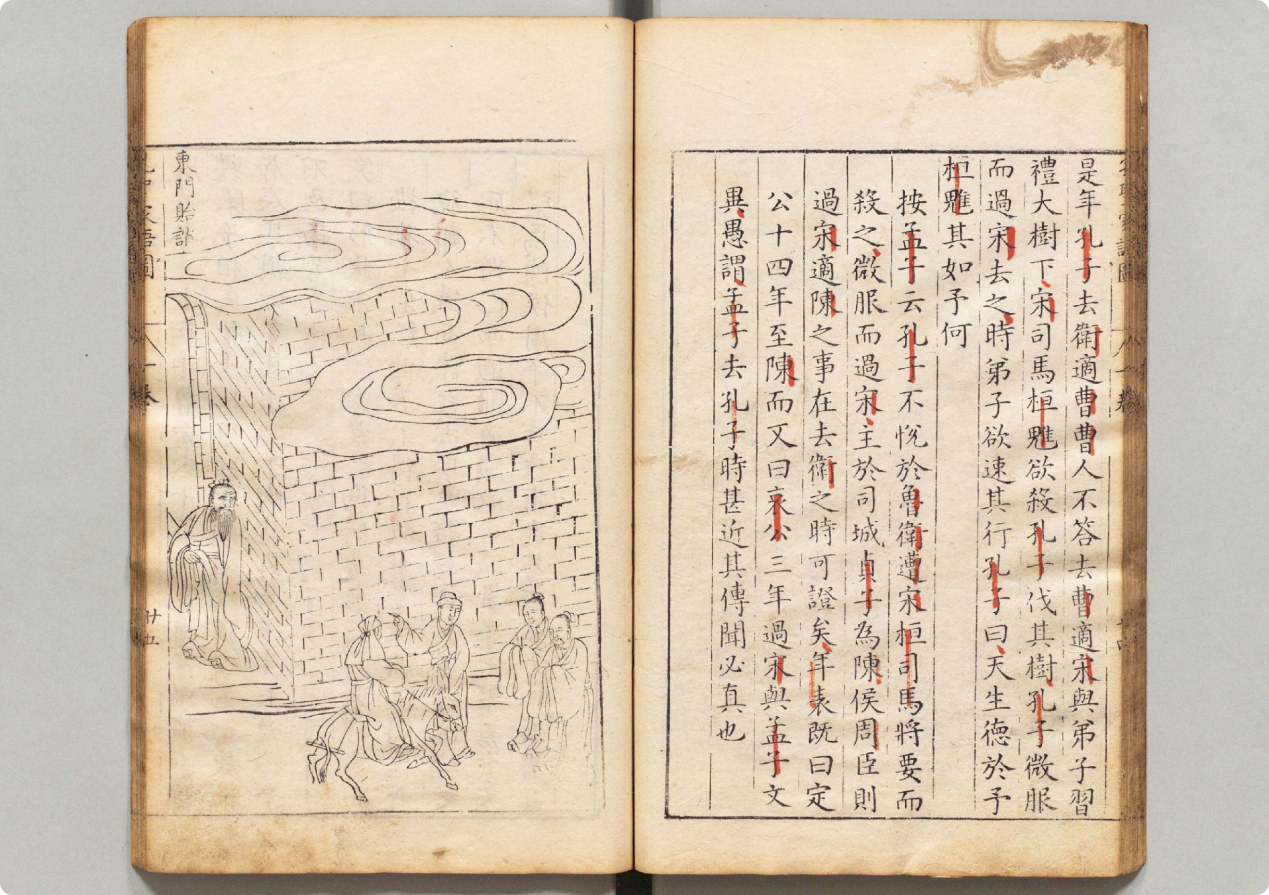 是年孔子去衛適曹曹人不答去曹適宋與弟子習
禮大樹下宋司馬桓魋欲殺孔子伐其樹孔子微服
而過宋去之時弟子欲速其行孔子曰天生德於予
桓魋其如予何
按孟子云孔子不悅於魯衛遭宋桓司馬將要而
殺之微服而過宋主於司城貞子為陳侯周臣則
過宋適陳之事在去衛之時可證矣年表既曰定
公十四年至陳而又曰哀公三年過宋與孟子文
異愚謂孟子去孔子時甚近其傳聞必真也
東門貽誚
廿五